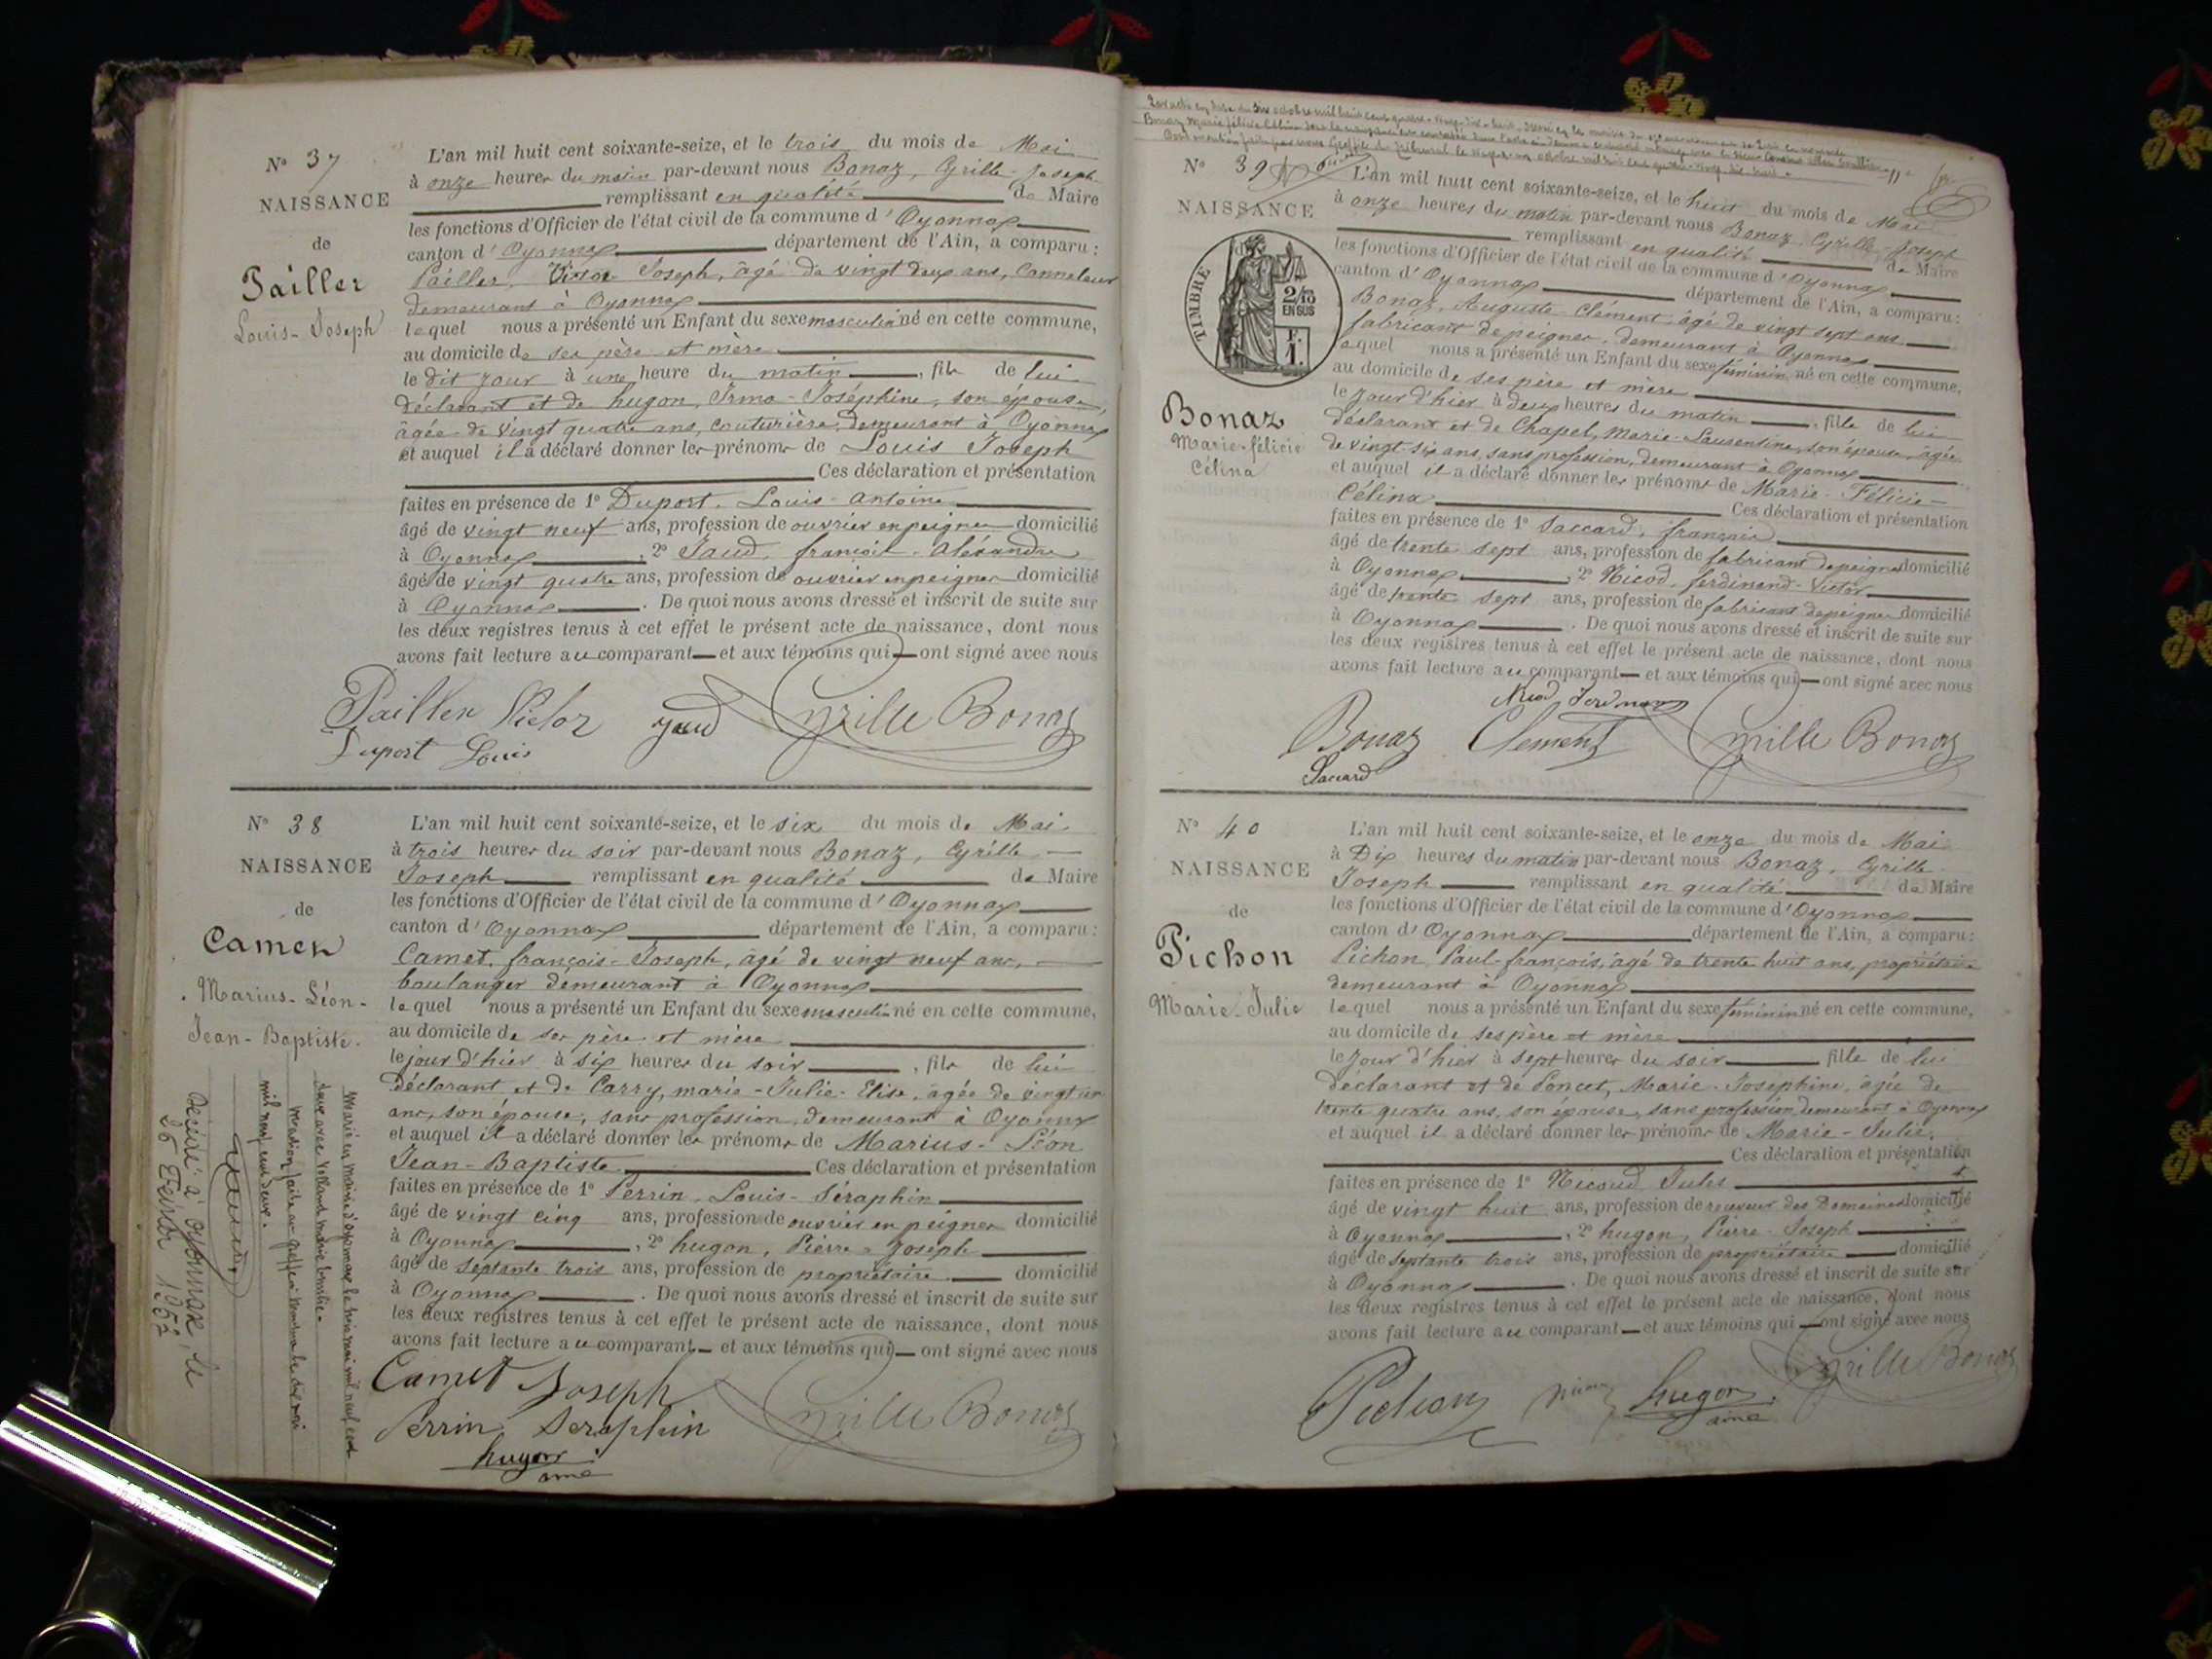 N° 37
NAISSANCE
de
Pailler
Louis-Joseph
L'an mil huit cent soixante-seize, et le trois du mois de Mai
à onze heures du matin par-devant nous Bonaz, Cyrille-Joseph
remplissant en qualité de Maire
les fonctions d'Officier de l'état civil de la commune d'Oyonnax
canton d'Oyonnax département de l'Ain, a comparu:
Pailler, Victor Joseph, âgé de vingt deux ans, Canneleur
demeurant à Oyonnax
lequel nous a présenté un Enfant du sexe masculin né en cette commune,
au domicile de ses père et mère
le dit jour à une heure du matin, fils de lui
déclarant et de hugon, Irma-Joséphine, son épouse,
âgée de vingt quatre ans, couturière, demeurant à Oyonnax
et auquel il a déclaré donner les prénoms de Louis Joseph
Ces déclaration et présentation
faites en présence de 1° Duport, Louis-Antoine
âgé de vingt neuf ans, profession de ouvrier en peignes domicilié
à Oyonnax, 2° Jaud, françois-Aléxandre
âgé de vingt quatre ans, profession de ouvrier en peignes domicilié
à Oyonnax. De quoi nous avons dressé et inscrit de suite sur
les deux registres tenus à cet effet le présent acte de naissance, dont nous
avons fait lecture au comparant et aux témoins qui ont signé avec nous
Pailler Victor Jaud Cyrille Bonaz
Duport Louis
N° 38
NAISSANCE
de
Camet
Marius-Léon-
Jean-Baptiste.
L'an mil huit cent soixante-seize, et le six du mois de Mai
à trois heures du soir par-devant nous Bonaz, Cyrille
Joseph remplissant en qualité de Maire
les fonctions d'Officier de l'état civil de la commune d'Oyonnax
canton d'Oyonnax département de l'Ain, a comparu:
Camet, françois-Joseph, âgé de vingt neuf ans,
boulanger demeurant à Oyonnax
lequel nous a présenté un Enfant du sexe masculin né en cette commune,
au domicile de ses père et mère
le jour d'hier à six heures du soir, fils de lui
déclarant et de Carry, marie-Julie-Elise, âgée de vingt un
ans, son épouse, sans profession, demeurant à Oyonnax
et auquel il a déclaré donner les prénoms de Marius-Léon
Jean-Baptiste Ces déclaration et présentation
faites en présence de 1° Perrin, Louis-Séraphin
âgé de vingt cinq ans, profession de ouvrier en peignes domicilié
à Oyonnax, 2° hugon, Pierre-Joseph
âgé de septante trois ans, profession de propriétaire domicilié
à Oyonnax. De quoi nous avons dressé et inscrit de suite sur
les deux registres tenus à cet effet le présent acte de naissance, dont nous
avons fait lecture au comparant et aux témoins qui ont signé avec nous
Camet Joseph
Perrin Seraphin Cyrille Bonaz
hugon
aine
Marié en mairie d'oyonnax le trois mai mil neuf cent
deux avec Volland marie Emilie.
mention faite au greffe à Nantua le dix mai
mil neuf cent deux.
Décédé à Oyonnax, le
26 Février 1957
N° 39
NAISSANCE
TIMBRE
2/10
EN SUS
F.
1.
Bonaz
Marie-félicie
Célina
L'an mil huit cent soixante-seize, et le huit du mois de Mai
à onze heures du matin par-devant nous Bonaz, Cyrille-Joseph
remplissant en qualité de Maire
les fonctions d'Officier de l'état civil de la commune d'Oyonnax
canton d'Oyonnax département de l'Ain, a comparu:
Bonaz, Auguste-Clément, âgé de vingt sept ans
fabricant de peignes, demeurant à Oyonnax
lequel nous a présenté un Enfant du sexe féminin né en cette commune,
au domicile de ses père et mère
le jour d'hier à deux heures du matin, fille de lui
déclarant et de Chapel, Marie-Laurentine, son épouse, âgée
de vingt-six ans, sans profession, demeurant à Oyonnax
et auquel il a déclaré donner les prénoms de Marie-Félicie-
Célina Ces déclaration et présentation
faites en présence de 1° Saccard, français
âgé de trente sept ans, profession de fabricant de peignes domicilié
à Oyonnax, 2° Nicod, ferdinand-Victor
âgé de trente sept ans, profession de fabricant de peignes domicilié
à Oyonnax. De quoi nous avons dressé et inscrit de suite sur
les deux registres tenus à cet effet le présent acte de naissance, dont nous
avons fait lecture au comparant et aux témoins qui ont signé avec nous
Bonaz Clement Cyrille Bonaz
Saccard
N° 40
NAISSANCE
de
Pichon
Marie-Julie
L'an mil huit cent soixante-seize, et le onze du mois de Mai
à Dix heures du matin par-devant nous Bonaz, Cyrille
Joseph remplissant en qualité de Maire
les fonctions d'Officier de l'état civil de la commune d'Oyonnax
canton d'Oyonnax département de l'Ain, a comparu:
Pichon, Paul-françois, âgé de trente huit ans, propriétaire
demeurant à Oyonnax
lequel nous a présenté un Enfant du sexe féminin né en cette commune,
au domicile de ses père et mère
le jour d'hier à sept heures du soir fille de lui
déclarant et de Poncet, Marie-Joséphine, âgée de
trente quatre ans, son épouse, sans profession demeurant à Oyonnax
et auquel il a déclaré donner les prénoms de Marie-Julie.
Ces déclaration et présentation
faites en présence de 1° Nicoud Jules
âgé de vingt huit ans, profession de receveur des Domaines domicilié
à Oyonnax, 2° hugon, Pierre-Joseph
âgé de septante trois ans, profession de propriétaire domicilié
à Oyonnax. De quoi nous avons dressé et inscrit de suite sur
les deux registres tenus à cet effet le présent acte de naissance, dont nous
avons fait lecture au comparant et aux témoins qui ont signé avec nous
Pichon hugon Cyrille Bonaz
aine